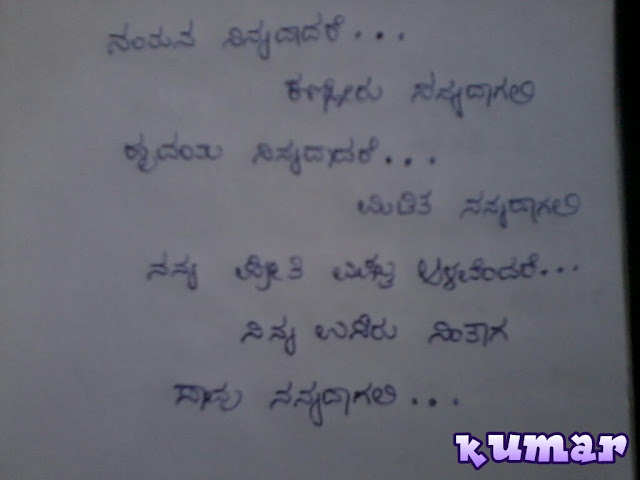 ನಯನ ನಿನ್ನದಾದರೆ...
ಕಣ್ಣೀರು ನನ್ನದಾಗಲಿ
ಹೃದಯ ನಿನ್ನದಾದರೆ...
ಮಿಡಿತ ನನ್ನದಾಗಲಿ
ನನ್ನ ಪ್ರೀತಿ ಎಷ್ಟು ಆಳವೆಂದರೆ...
ನಿನ್ನ ಉಸಿರು ನಿಂತಾಗ
ಸಾವು ನನ್ನದಾಗಲಿ...
kumar